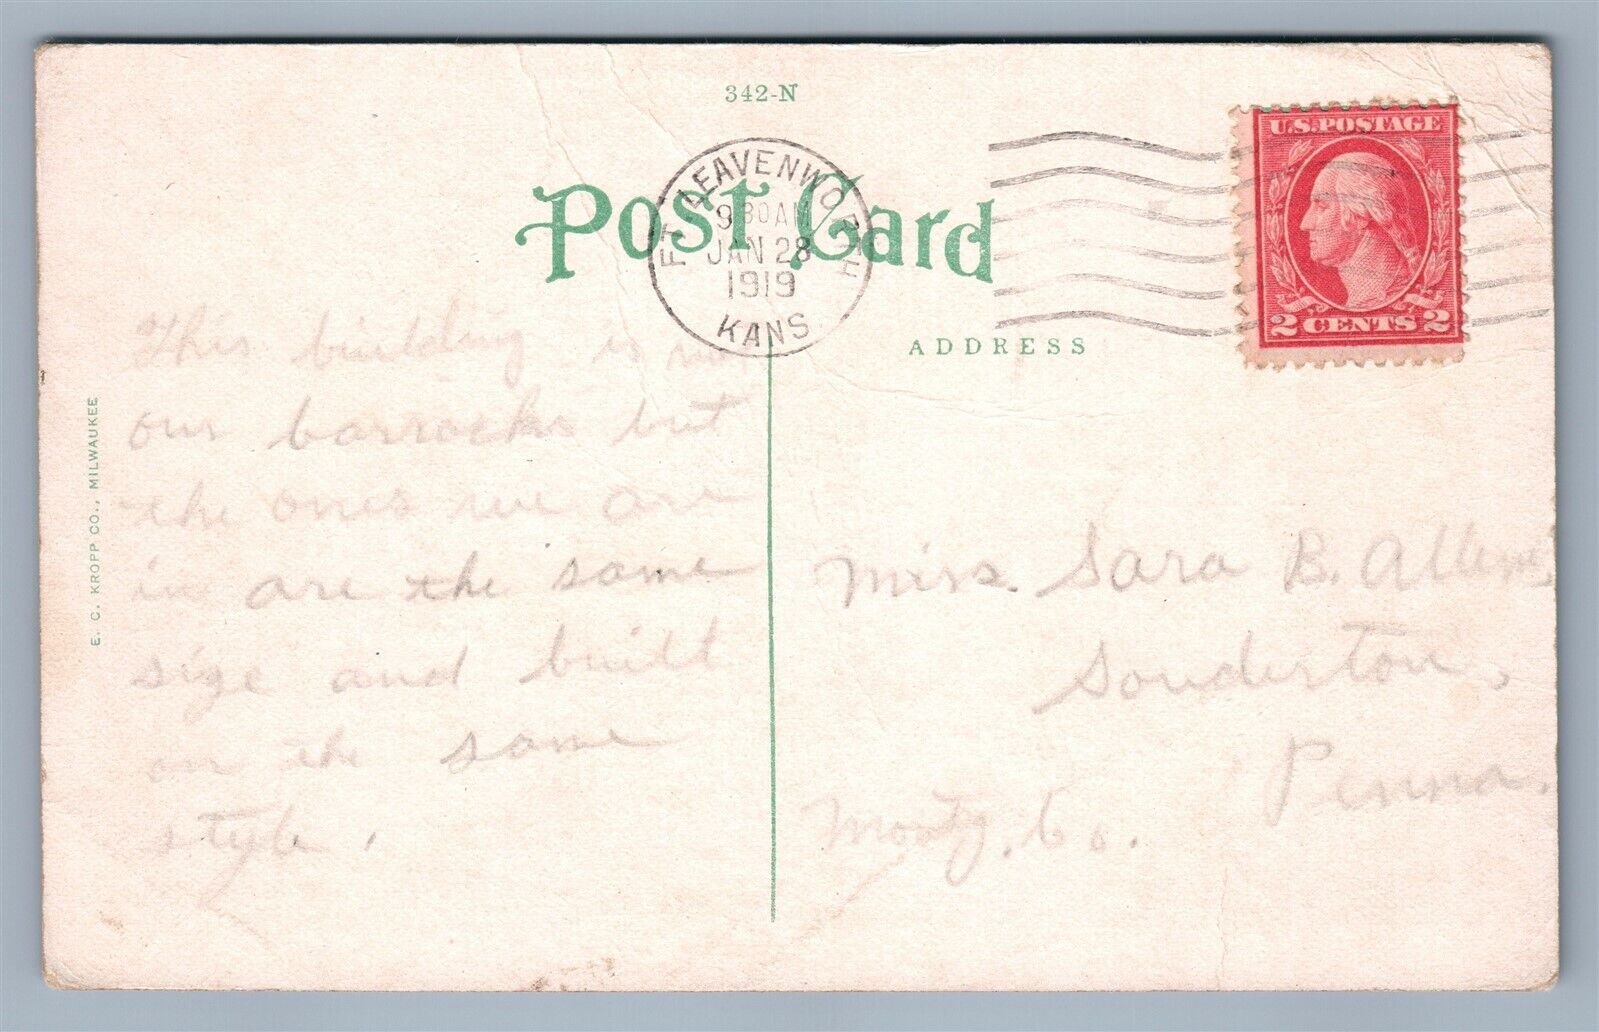 342-N
POST CARD
FT. LEAVENWORTH
9 30 AM
JAN 28
1919
KANS.
U.S. POSTAGE
2 CENTS 2
ADDRESS
E. C. KROPP CO., MILWAUKEE
This building is
our barracks but
the ones we are
in are the same
size and built
on the same
style.
Miss. Sara B.
Souderton,
Penna.
Montg. Co.